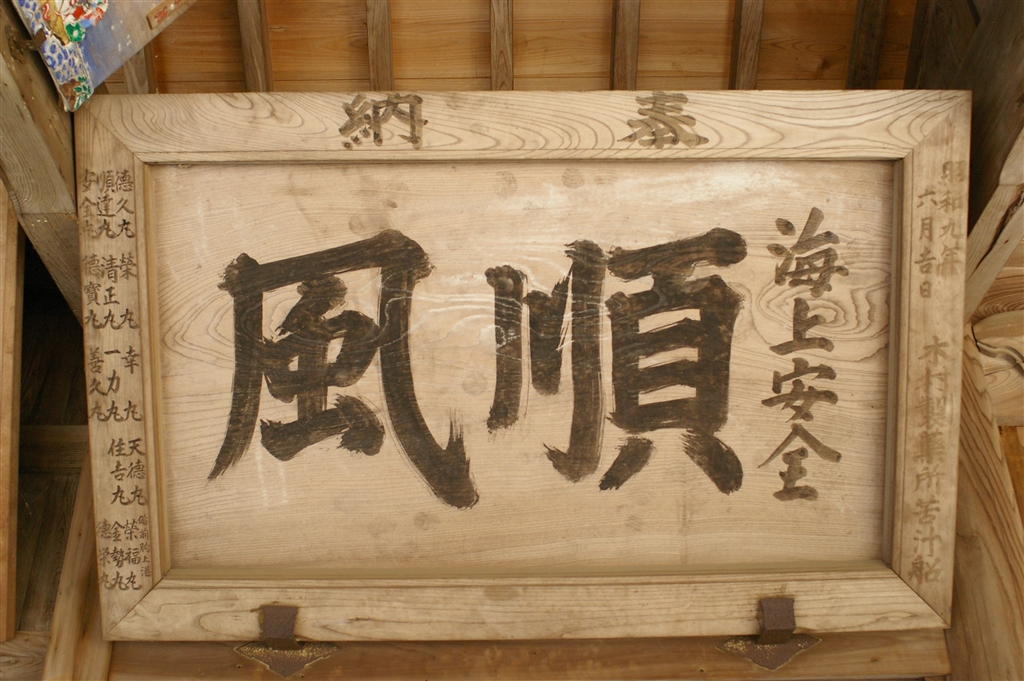 奉納
昭和九年
六月吉日
木村製藥所苦汁船
海上安全
順風
德久丸
順達丸
安全丸
榮丸
清正丸
德寶丸
幸丸
一力丸
善久丸
天德丸
住吉丸
備前胸上港
榮福丸
金勢丸
德榮丸